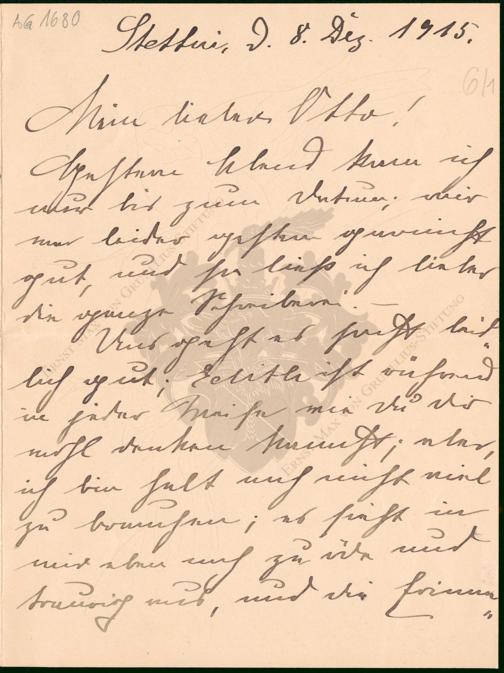 AG 1680
Stettin, d. 8. Dez. 1915.
6/1
Mein lieber Otto!
Gestern Abend kam ich
nur bis zum Datum; mir
war leider gestern garnicht
gut, und so ließ ich lieber
die ganze Schreiberei. —
Uns geht es sonst leid„
lich gut; Edith ist rührend
in jeder Weise wie du dir
wohl denken kannst; aber,
ich bin halt noch nicht viel
zu brauchen; es sieht in
mir eben noch zu öde und
traurig aus, und die Erinne„
Ernst Max von Grumbkow-Stiftung
Ernst Max von Grumbkow-Stiftung